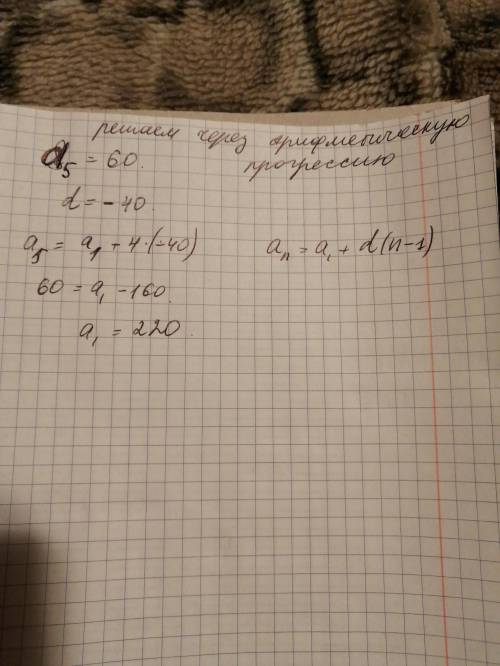 решаем через арифметическую прогрессию
a₅ = 60.
d = -40
a₅ = a₁ + 4·(-40)
aₙ = a₁ + d(n-1)
60 = a₁ - 160.
a₁ = 220.